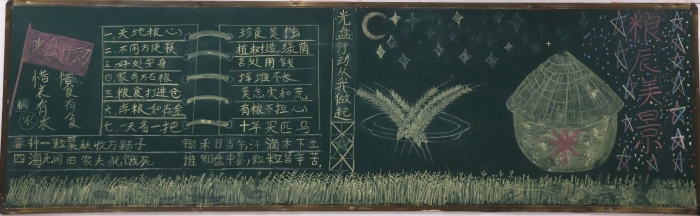 光盘行动
惜衣有衣
惜食有食
一.天地粮心
珍食莫蚀
二.不用方便筷
植树造绿荫
三.好处安身
苦处用钱
四.家有万石粮
挥难不长
五.粮食打进仓
莫忘灾和荒
六.当粮如在金
有粮不担心
七.一天省一把
十年买匹马
春种一粒粟秋收万颗子
四海无闲田农夫犹饿死
锄禾日当午汗滴禾下土
谁知盘中餐粒粒皆辛苦
光盘行动从我做起
粮辰美景